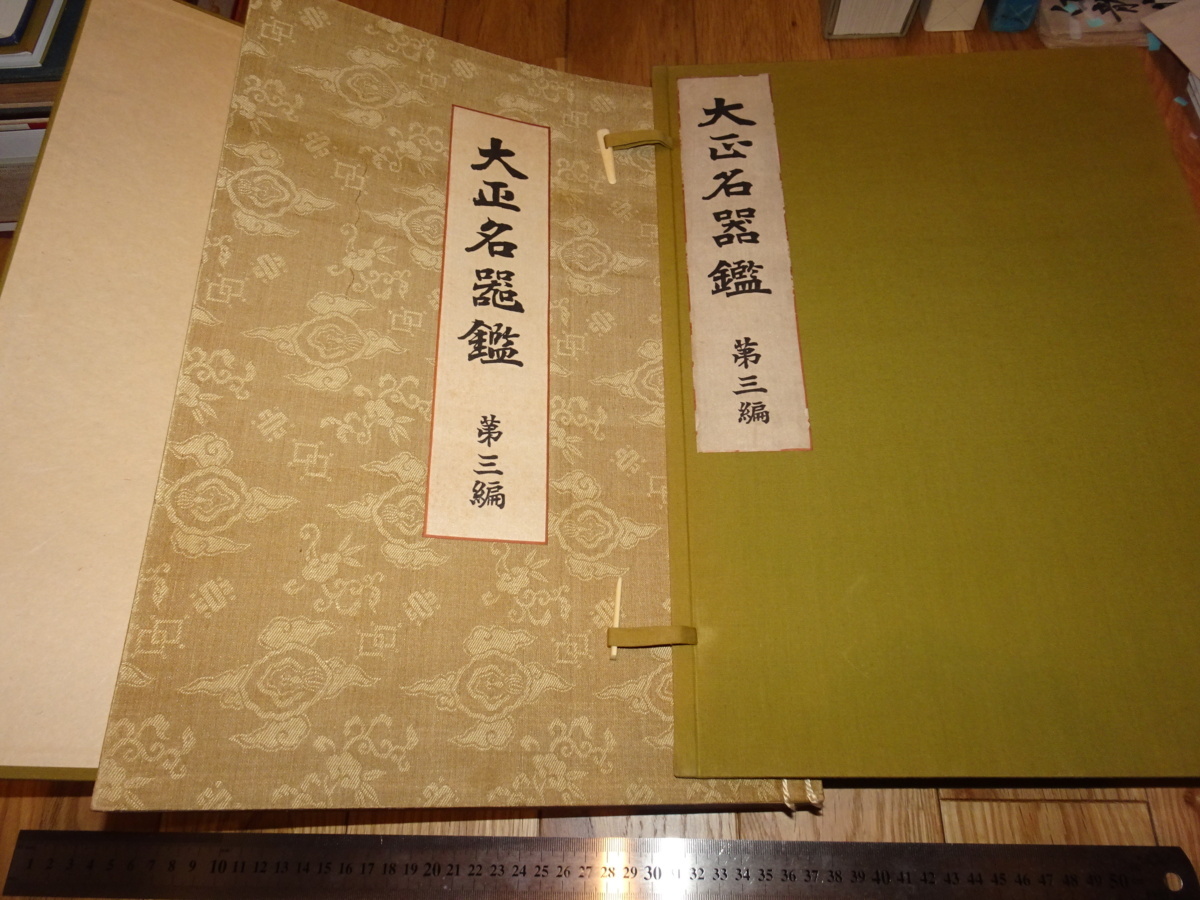 大正名器鑑
第三編
大正名器鑑
第三編
1 2 3 4 5 6 7 8 9 10 11 12 13 14 15 16 17 18 19 20 21 22 23 24 25 26 27 28 29 30 31 32 33 34 35 36 37 38 39 40 41 42 43 44 45 46 47 48 49 50